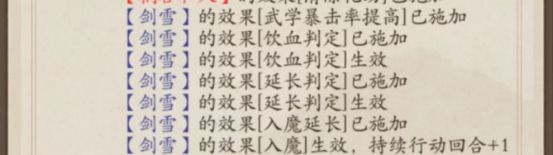 的效果[ ]已施加
【剑雪】的效果[武学暴击率提高]已施加
【剑雪】的效果[饮血判定]已施加
【剑雪】的效果[饮血判定]生效
【剑雪】的效果[延长判定]已施加
【剑雪】的效果[延长判定]生效
【剑雪】的效果[入魔延长]已施加
【剑雪】的效果[入魔]生效，持续行动回合+1